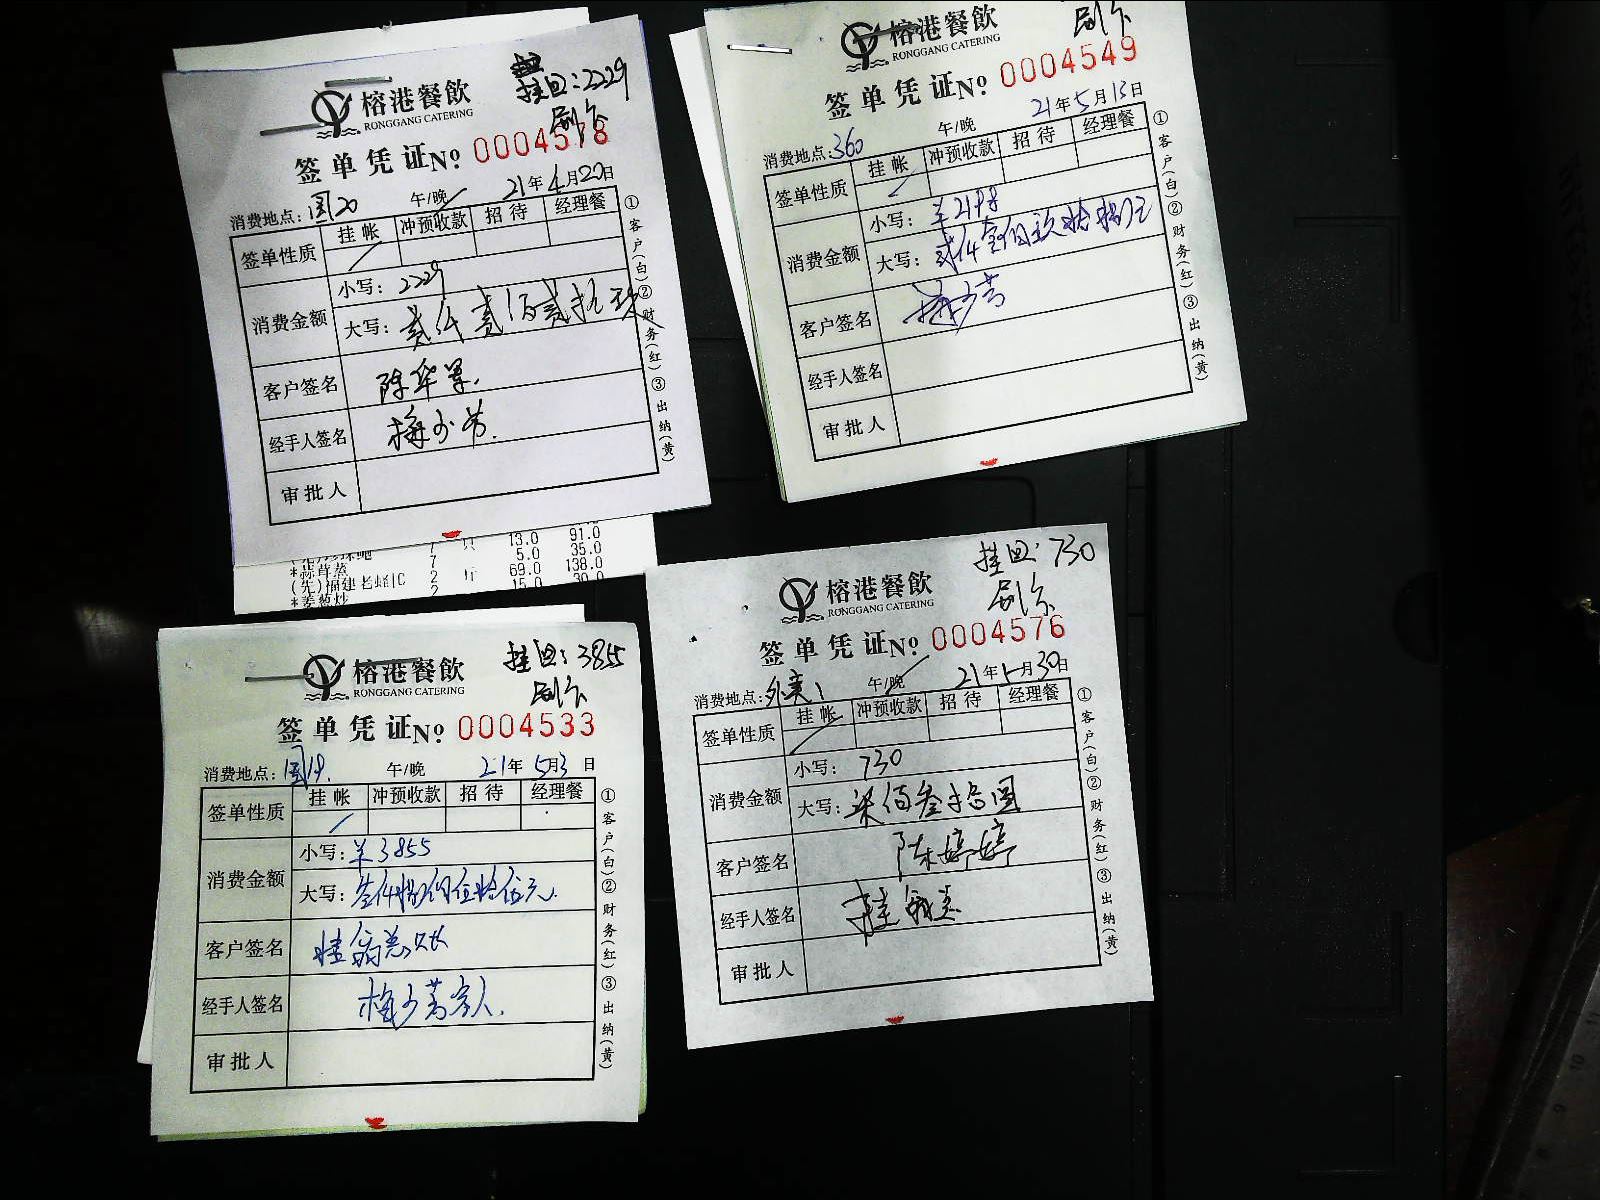 榕港餐飲
RONGGANG CATERING
挂回：2229
刷卡
签单凭证No 0004578
消费地点：国20 午/晚 21年4月20日
签单性质 挂帐 冲预收款 招待 经理餐
消费金额 小写：2229
大写：贰仟贰佰贰拾玖
客户签名 陈华
经手人签名 梅少芳
审批人
①客户(白)②财务(红)③出纳(黄)
7 只 13.0 91.0
*蒜茸蒸 7 5.0 35.0
(先)福建老蛏C 2 斤 69.0 138.0
*姜葱炒 2 15.0 30.0
榕港餐飲
RONGGANG CATERING
刷卡
签单凭证No 0004549
消费地点：360 午/晚 21年5月13日
签单性质 挂帐 冲预收款 招待 经理餐
消费金额 小写：¥2198
大写：贰仟壹佰玖拾捌元
客户签名 梅少芳
经手人签名
审批人
①客户(白)②财务(红)③出纳(黄)
榕港餐飲
RONGGANG CATERING
挂回：3855
刷卡
签单凭证No 0004533
消费地点：国19. 午/晚 21年5月3日
签单性质 挂帐 冲预收款 招待 经理餐
消费金额 小写：¥3855
大写：叁仟捌佰伍拾伍元.
客户签名
经手人签名 梅少芳客人.
审批人
①客户(白)②财务(红)③出纳(黄)
榕港餐飲
RONGGANG CATERING
挂回：730
刷卡
签单凭证No 0004576
消费地点：外卖1 午/晚 21年5月30日
签单性质 挂帐 冲预收款 招待 经理餐
消费金额 小写：730
大写：柒佰叁拾圆
客户签名 陈婷婷
经手人签名
审批人
①客户(白)②财务(红)③出纳(黄)